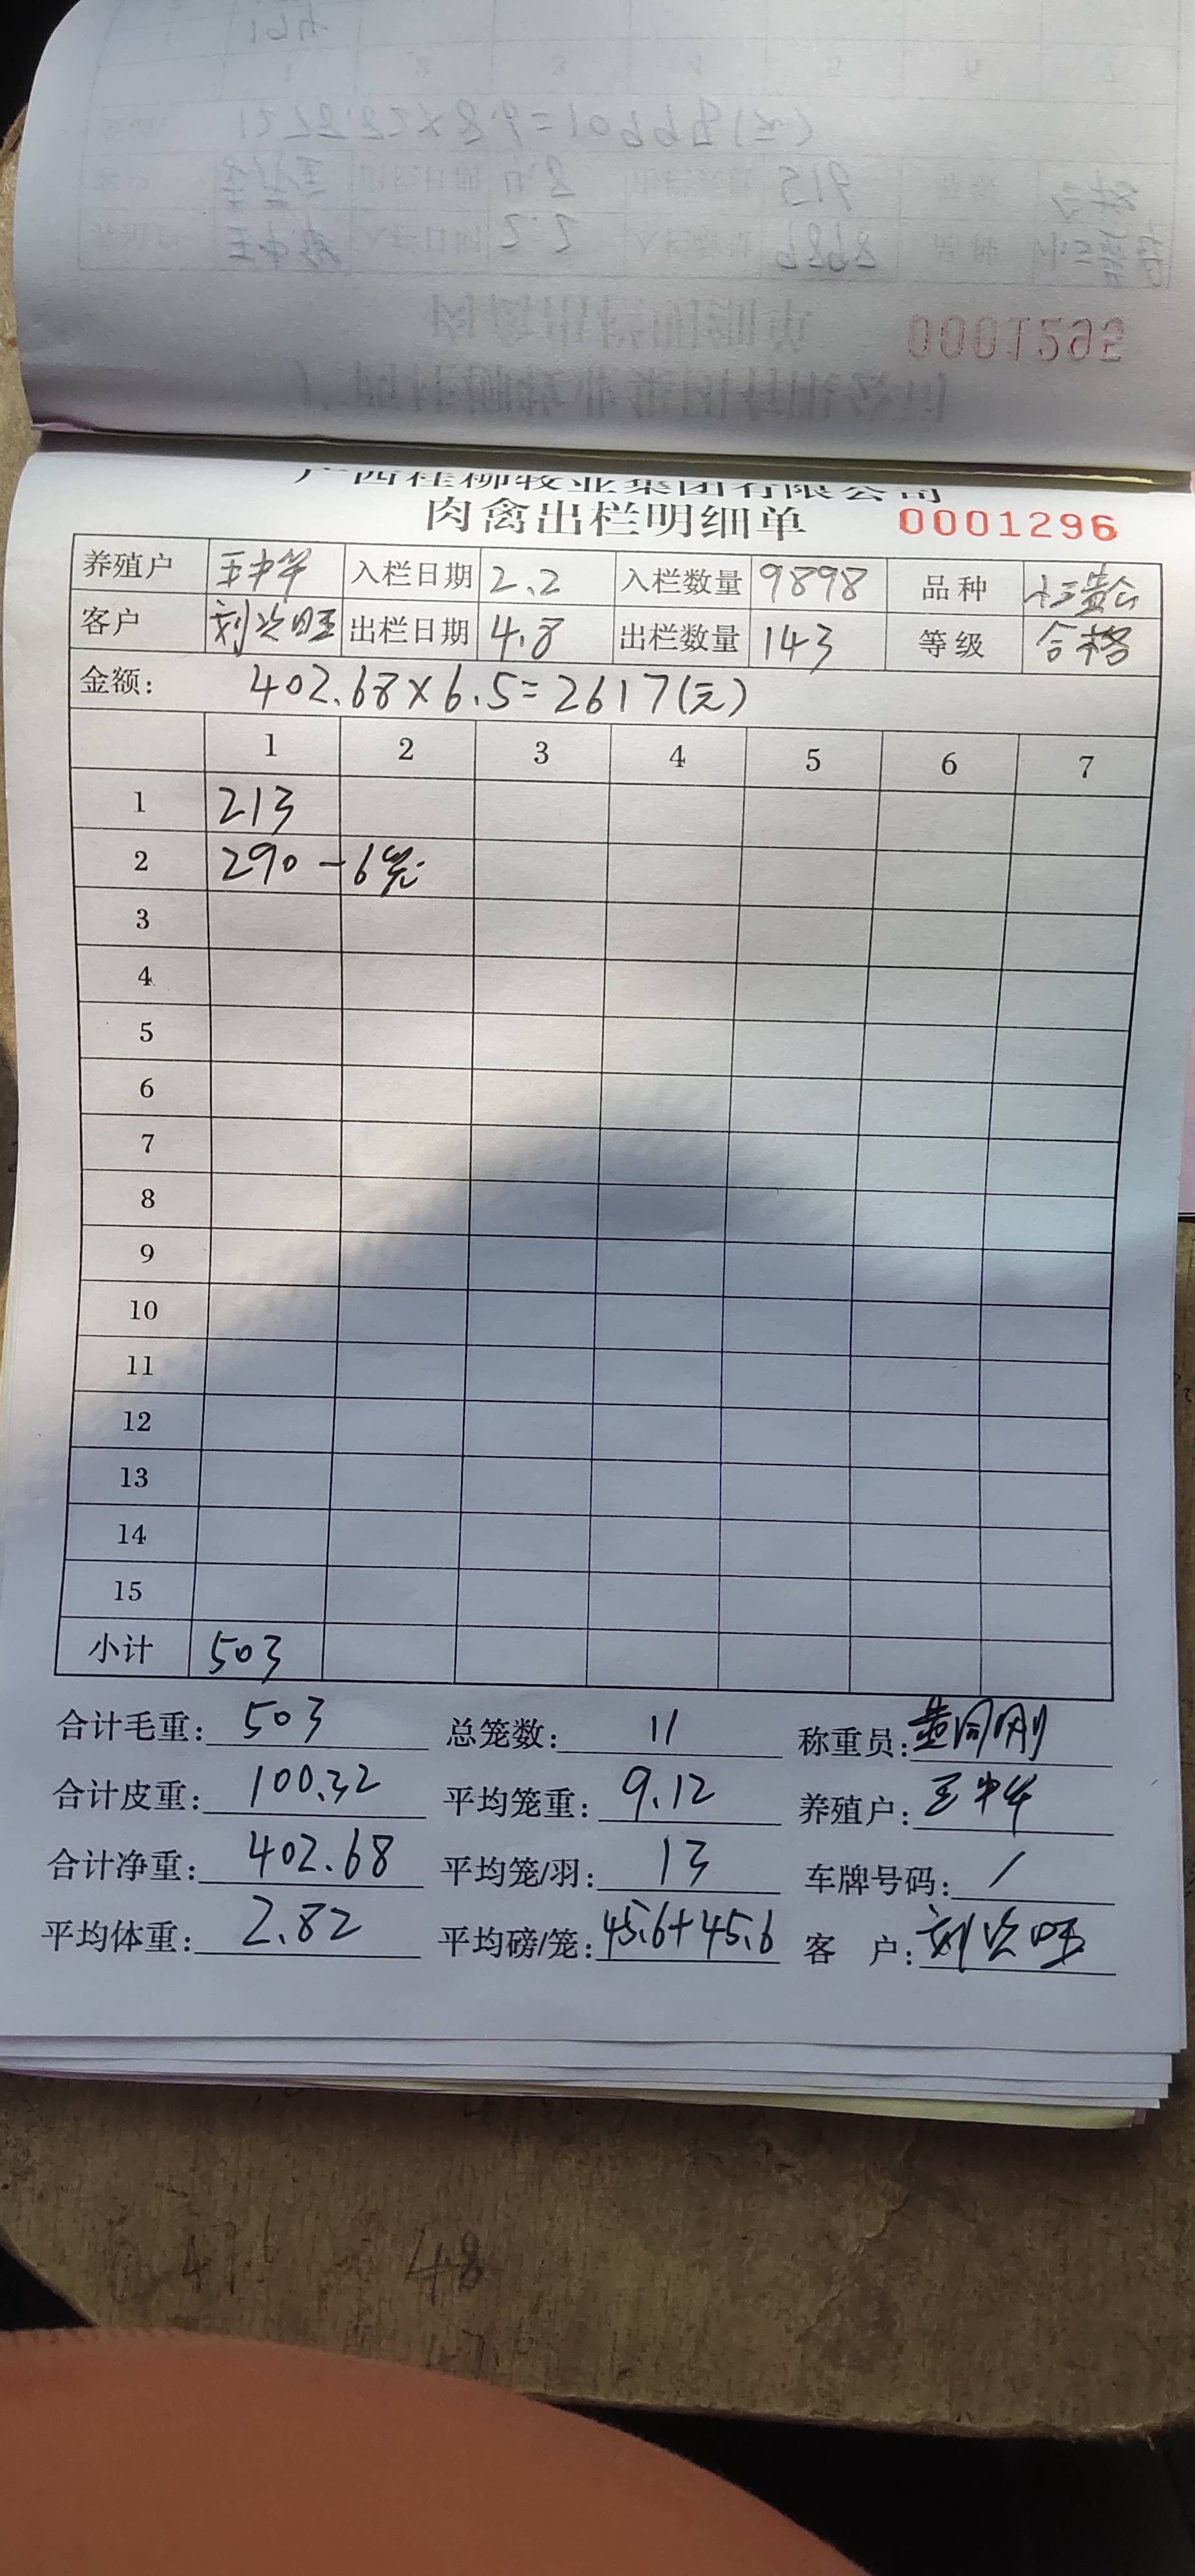 0001295
广西桂柳牧业集团有限公司
肉禽出栏明细单 0001296
养殖户 王中华 入栏日期 2.2 入栏数量 9898 品种
客户 出栏日期 4.8 出栏数量 143 等级 合格
金额: 402.68×6.5=2617(元)
1 2 3 4 5 6 7
1 213
2 290-6笼
3
4
5
6
7
8
9
10
11
12
13
14
15
小计 503
合计毛重: 503 总笼数: 11 称重员:
合计皮重: 100.32 平均笼重: 9.12 养殖户: 王中华
合计净重: 402.68 平均笼/羽: 13 车牌号码: /
平均体重: 2.82 平均磅/笼: 45.6+45.6 客 户:
48